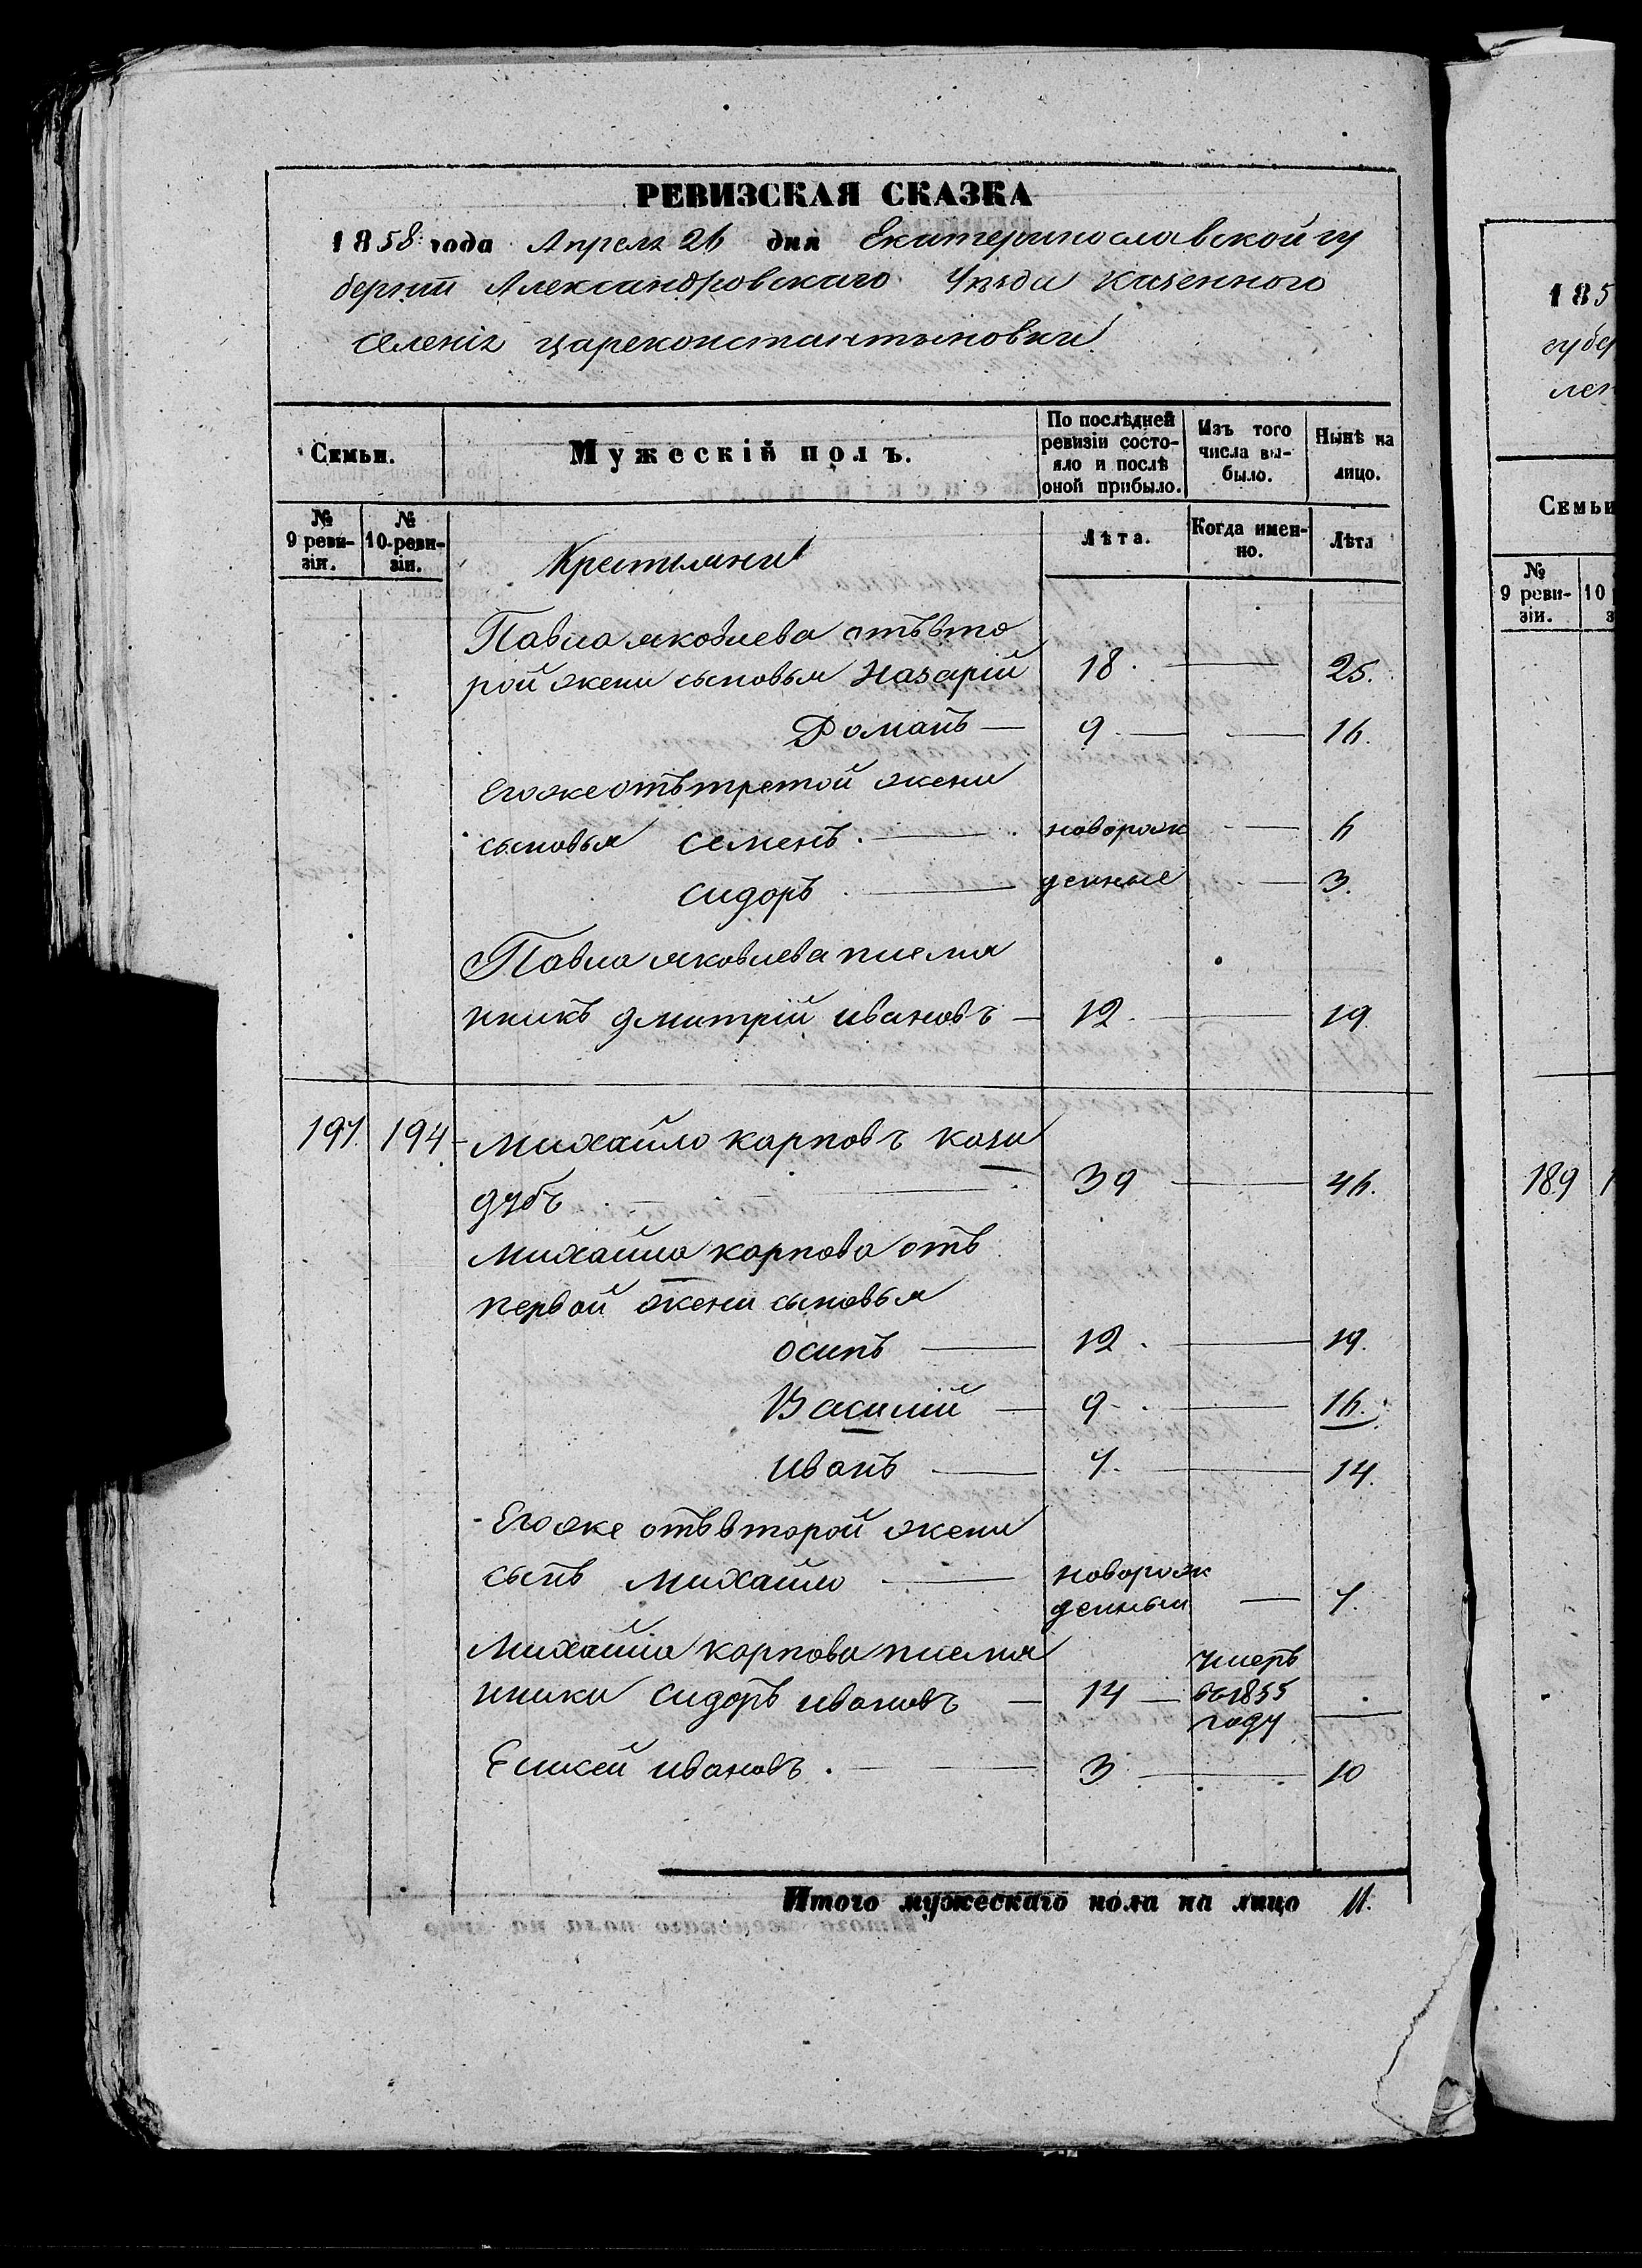 РЕВИЗСКАЯ СКАЗКА
1858 года Апреля 26 дня Екатеринославской гу
берніи Александровскаго Уѣзда Казенного
селенія Цареконстантыновки
Семьи.
Мужескій полъ.
По послѣдней ревизіи состо-
яло и послѣ
оной прибыло.
Изъ того
числа вы-
было.
Нынѣ на
лицо.
№
9 реви-
зіи.
№
10 реви-
зіи.
Крестьяне
Лѣта.
Когда имен-
но.
Лѣта
Павла яковлева отъ вто
рой жени сыновья Назарій 18. — 25.
Романъ — 9 — — 16.
Егоже отъ третой жени
сыновья семенъ. — новорож — 6
сидоръ — денные — 3.
Павла яковлева племя
нникъ дмитрій ивановъ — 12. — 19.
191. 194 Михайло карповъ кози
дубъ — 39 — 46.
Михайла карпова отъ
первой жени сыновья
осипъ — 12. — 19.
Василій — 9 — 16.
иванъ — 7. — 14.
Егоже отъ второй жени
сынъ михайло — новорож
денный — 7.
Михайла карпова племя
нники сидоръ ивановъ — 14 — умеръ
въ 1855
году —
ивановъ. — 3 — 10
Итого мужескаго пола на лицо 11.
185
губер
лен
Семьи
№
9 реви-
зіи.
10
189